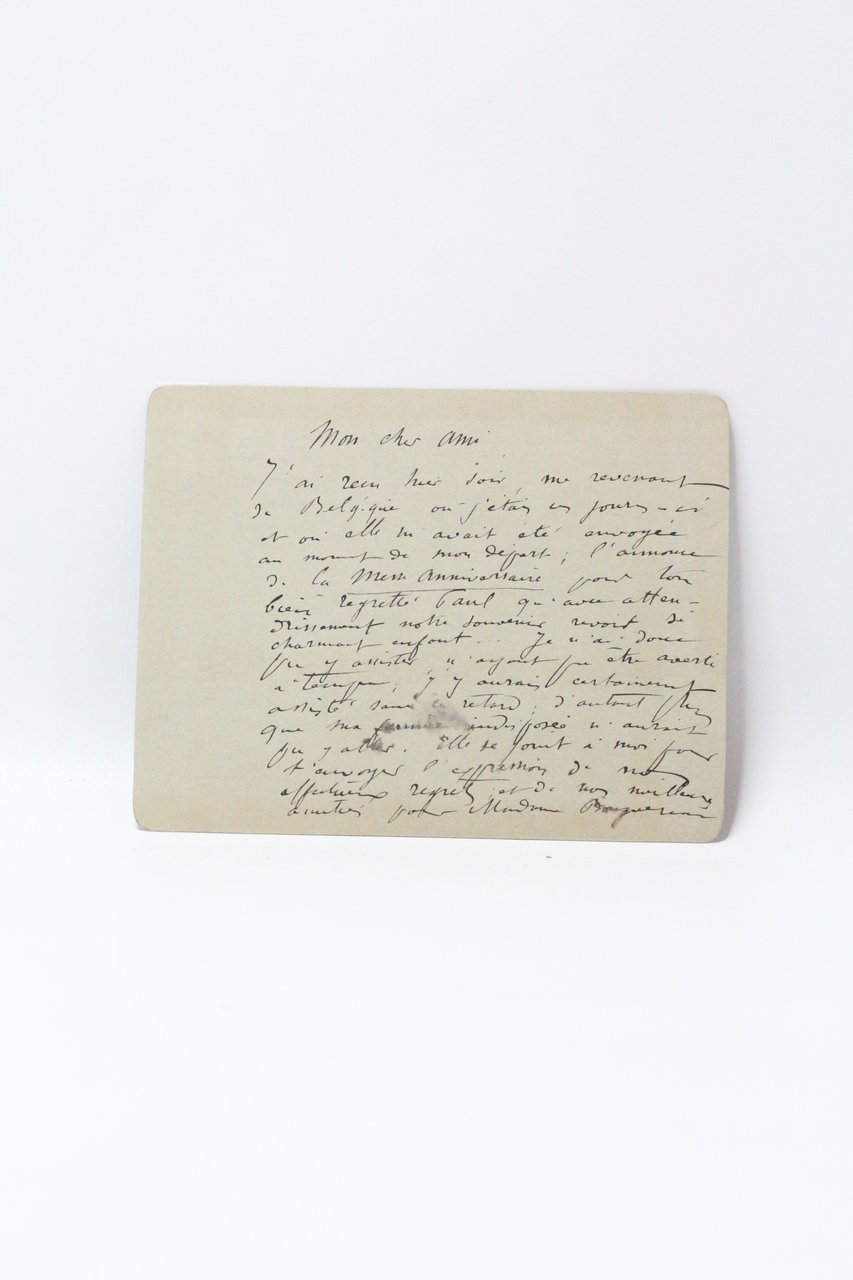 Mon cher ami
J'ai recu hier soir, me revenant
de Belgique où j'étais ces jours-ci
et où elle m'avait été envoyée
au moment de mon départ ; l'annonce
de la Messe Anniversaire pour ton
bien regretté Paul qu'avec atten-
drissement notre souvenir revoit si
charmant enfant... Je n'ai donc
pu y assister n'ayant pu être averti
à temps ; j'y aurais certainement
assisté sans ce retard, d'autant plus
que ma femme indisposée n'aurait
pu y aller. Elle se joint à moi pour
t'envoyer l'expression de nos
affectueux regrets et de nos meilleures
amitiés pour Madame